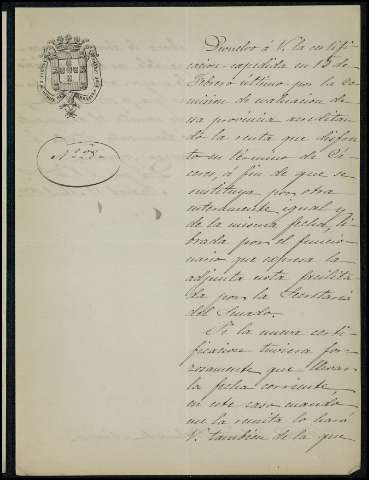 Nº 28.
Devuelvo á V. la certifi-
cacion expedida en 13 de
Febrero último por la Co-
mision de evaluacion de
esa provincia acreditan-
do la renta que disfru-
to en término de Cá-
ceres, á fin de que se
sustituya por otra
enteramente igual y
de la misma fecha, li-
brada por el funcio-
nario que espresa la
adjunta nota facilita-
da por la Secretaria
del Senado.
Si la nueva certi-
ficacion tuviera for-
zosamente que llevar
la fecha corriente,
en este caso mandá
me la remita lo hará
V. tambien de la que